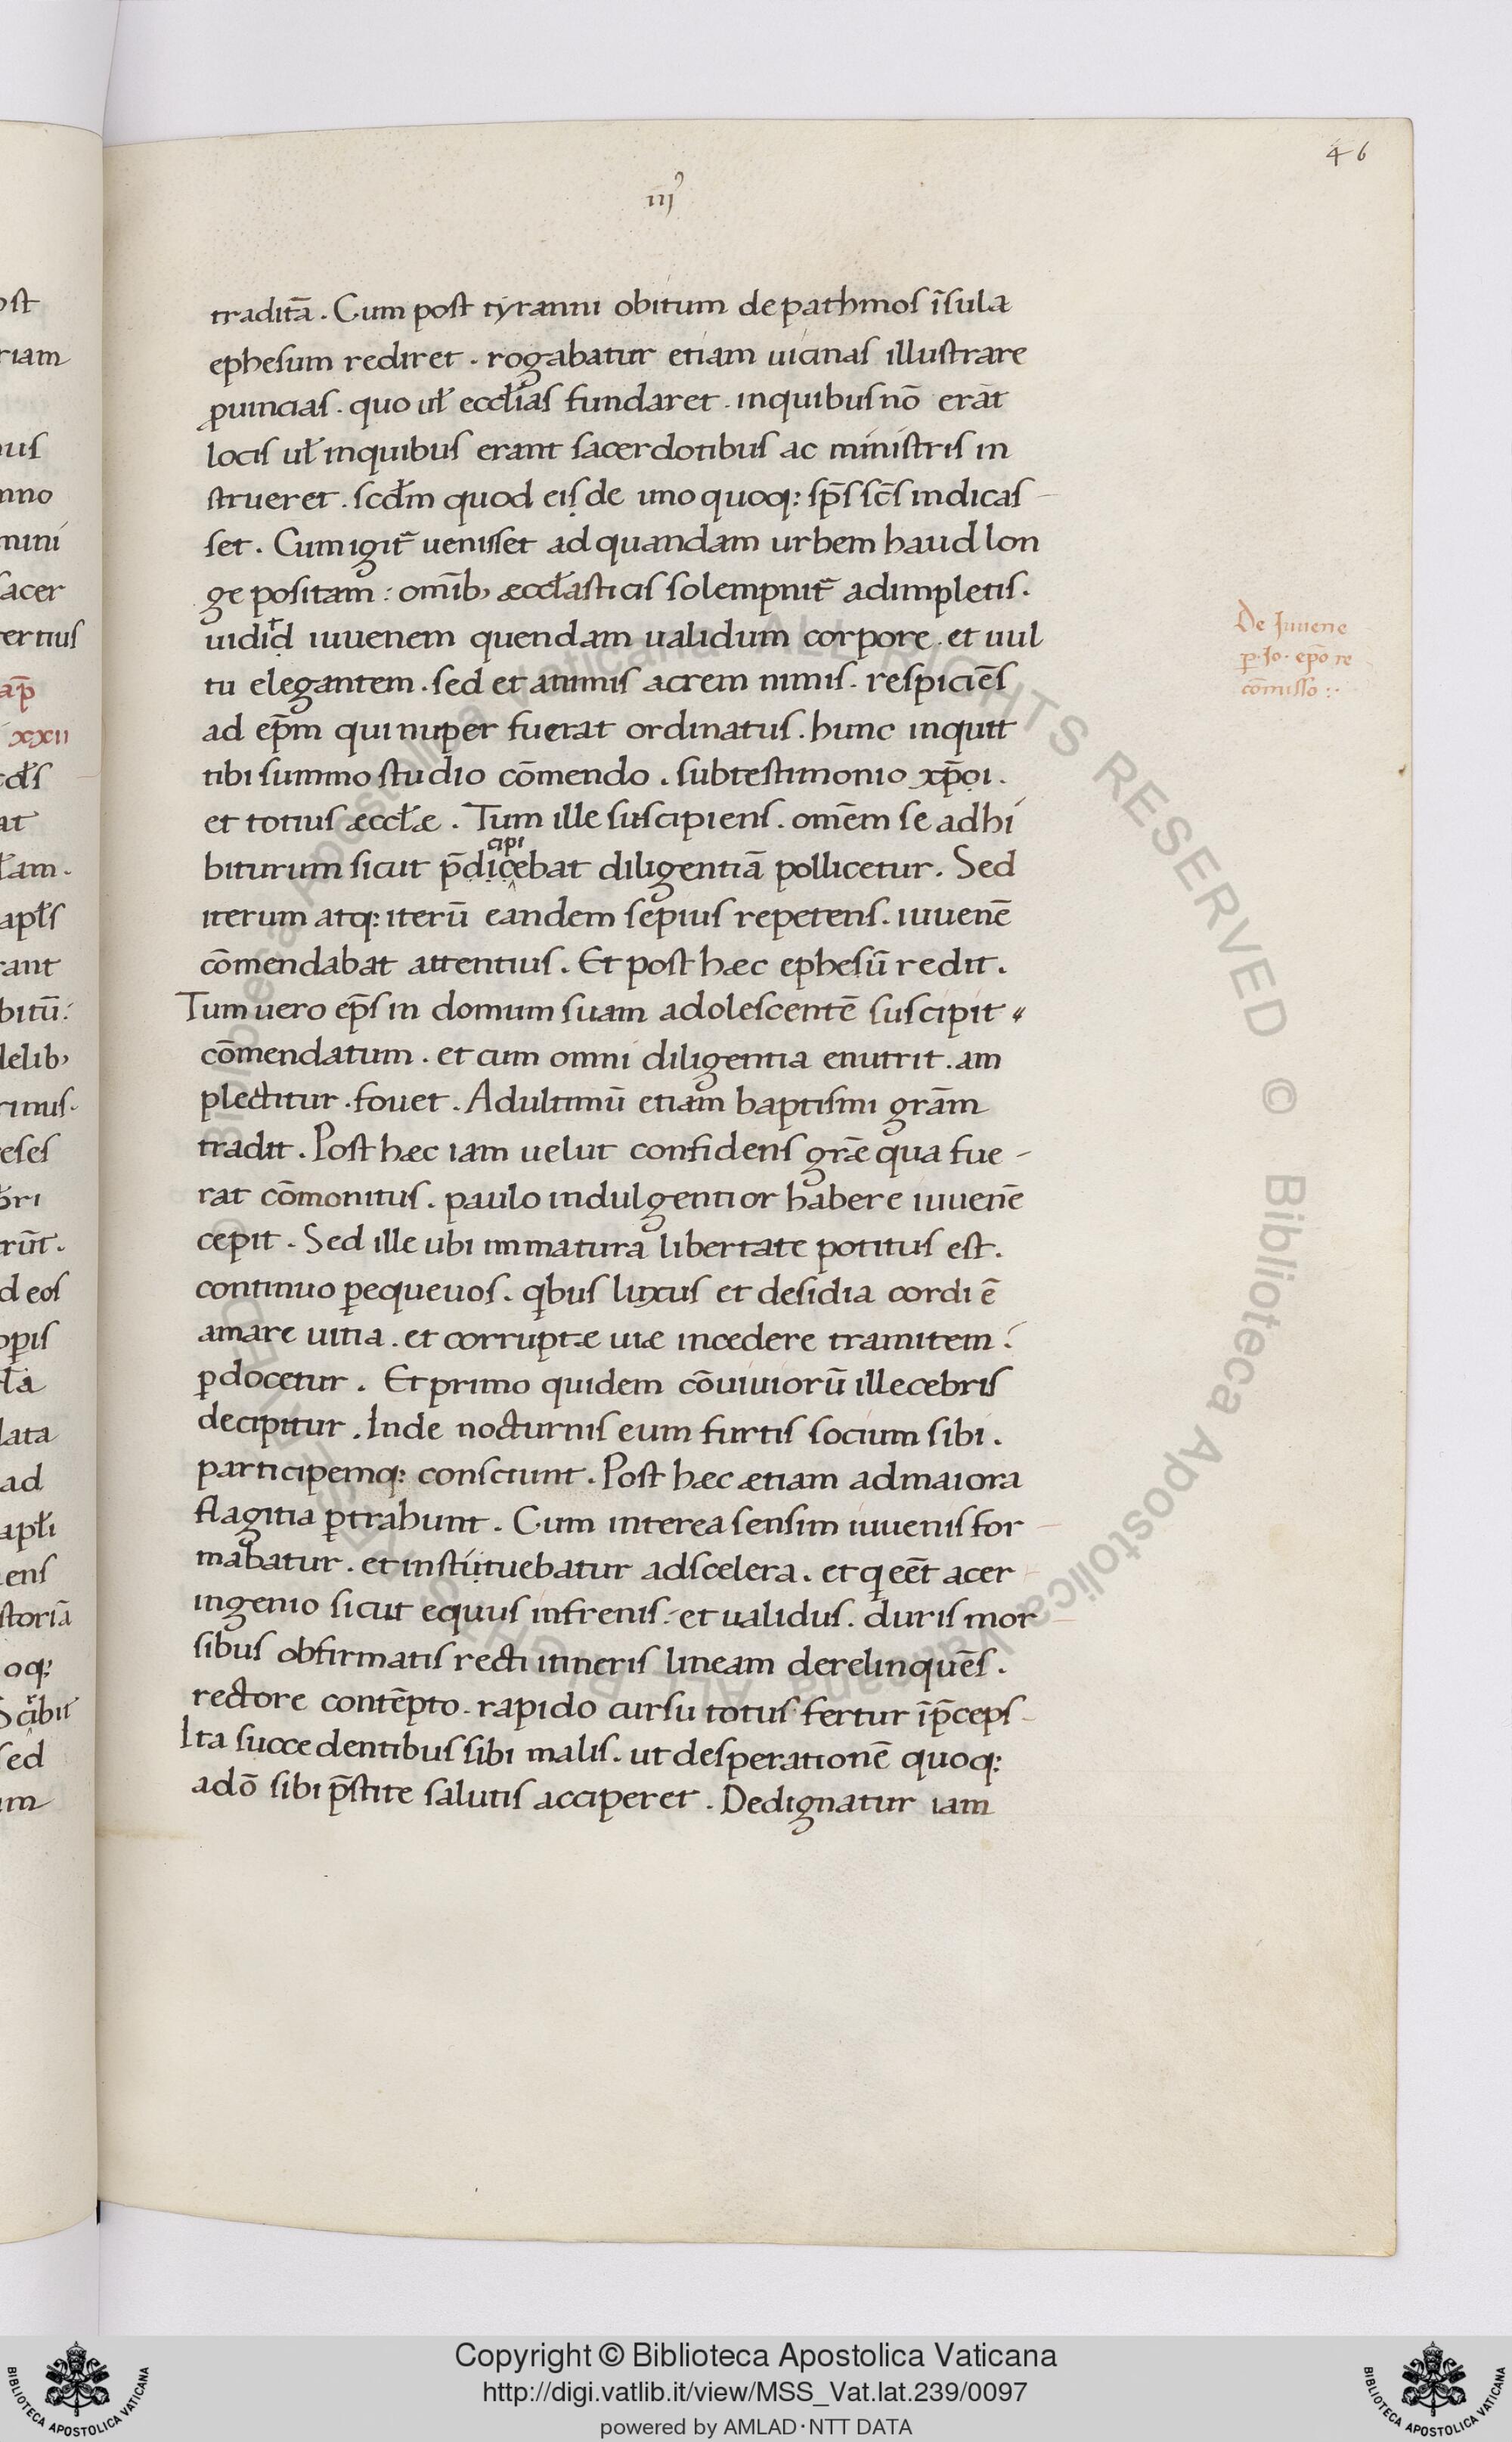 46
iij
traditā. Cum post tyranni obitum de pathmos īsula
ephesum rediret. rogabatur etiam uicinas illustrare
ꝓuincias. quo uł eccłias fundaret. inquibus nō erāt
locis uł inquibus erant sacerdotibus ac ministris in
strueret. scdm̄ quod eis de uno quoq: sp̄s sc̄s indicas
set. Cum igit̄ uenisset ad quandam urbem haud lon
ge positam: om̄ib; æccłasticis solempnit̄ adimpletis.
uidid iuuenem quendam ualidum corpore. et uul
tu elegantem. sed et animis acrem nimis. respiciēs
ad ep̄m qui nuper fuerat ordinatus. hunc inquit
tibi summo studio cōmendo. sub testimonio xp̄oi.
et totius æccłæ. Tum ille suscipiens. om̄em se adhi
biturum sicut p̄dicebat diligentiā pollicetur. Sed
cipi
iterum atq: iterū eandem sepius repetens. iuuenē
cōmendabat attentius. Et post hæc ephesū redit.
Tum uero ep̄s in domum suam adolescentē suscipit
cōmendatum. et cum omni diligentia enutrit. am
plectitur. fouet. Ad ultimū etiam baptismi grām
tradit. Post hæc iam uelut confidens grǣ qua fue-
rat cōmonitus. paulo indulgentior habere iuuenē
cepit. Sed ille ubi immatura libertate potitus est.
continuo ꝑequeuos. qibus luxus et desidia cordi ē
amare uitia. et corruptæ uiæ incedere tramitem:
ꝑdocetur. Et primo quidem cōuiuiorū illecebris
decipitur. Inde nocturnis eum furtis socium sibi.
participemq: consciunt. Post hæc ætiam ad maiora
flagitia ꝑtrahunt. Cum interea sensim iuuenis for
mabatur. et instituebatur ad scelera. et q eēt acer
ingenio sicut equus infrenis. et ualidus. duris mor
sibus obfirmatis recti itineris lineam derelinquēs.
rectore contēpto. rapido cursu totus fertur īp̄ceps
Ita succedentibus sibi malis. ut desperationē quoq:
adō sibi p̄stite salutis acciperet. Dedignatur iam
De Iuuene
ꝑ. Io. ep̄o re
cōmisso:.
Copyright © Biblioteca Apostolica Vaticana
http://digi.vatlib.it/view/MSS_Vat.lat.239/0097
powered by AMLAD·NTT DATA
BIBLIOTECA APOSTOLICA VATICANA
BIBLIOTECA APOSTOLICA VATICANA
© Biblioteca Apostolica Vaticana ALL RIGHTS RESERVED
© Biblioteca Apostolica Vaticana ALL RIGHTS RESERVED